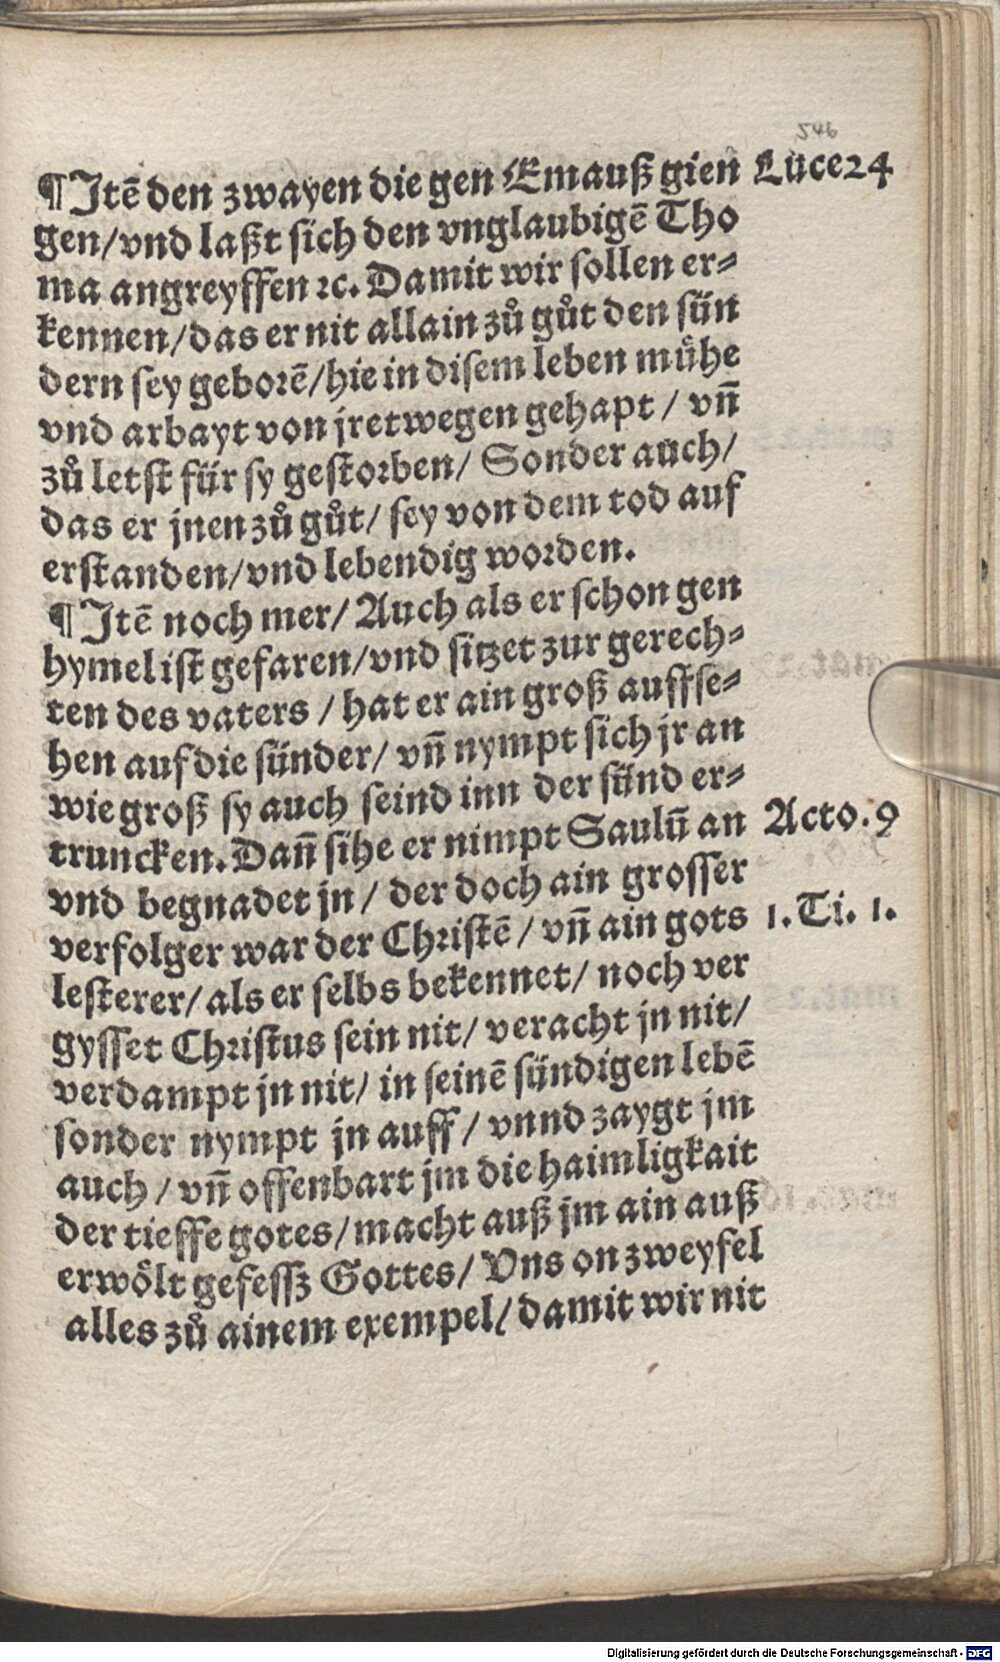 ¶ Jtē den zwayen die gen Emauß gien Luce 24
gen/vnd laßt sich den vnglaubigē Tho
ma angreyffen ꝛc. Damit wir sollen er⸗
kennen/das er nit allain zů gůt den sün
dern sey geborē/hie in disem leben mühe
vnd arbayt von jret wegen gehapt / vñ
zů letst für sy gestorben/ Sonder auch/
das er jnen zů gůt/ sey von dem tod auf
erstanden/vnd lebendig worden.
¶ Jtē noch mer/ Auch als er schon gen
hymel ist gefaren/vnd sitzet zur gerech⸗
ten des vaters / hat er ain groß auffse⸗
hen auf die sünder/ vñ nympt sich jr an
wie groß sy auch seind inn der sünd er⸗
truncken. Dañ sihe er nimpt Saulū an Acto. 9
vnd begnadet jn / der doch ain grosser
verfolger war der Christē / vñ ain gots 1. Ti. 1.
lesterer/ als er selbs bekennet/ noch ver
gysset Christus sein nit/ veracht jn nit/
verdampt jn nit/ in seinē sündigen lebē
sonder nympt jn auff / vnnd zaygt jm
auch / vñ offenbart jm die haimligkait
der tieffe gotes/macht auß jm ain auß
erwölt gefessz Gottes/ Vns on zweyfel
alles zů ainem exempel/ damit wir nit
Digitalisierung gefördert durch die Deutsche Forschungsgemeinschaft - DFG